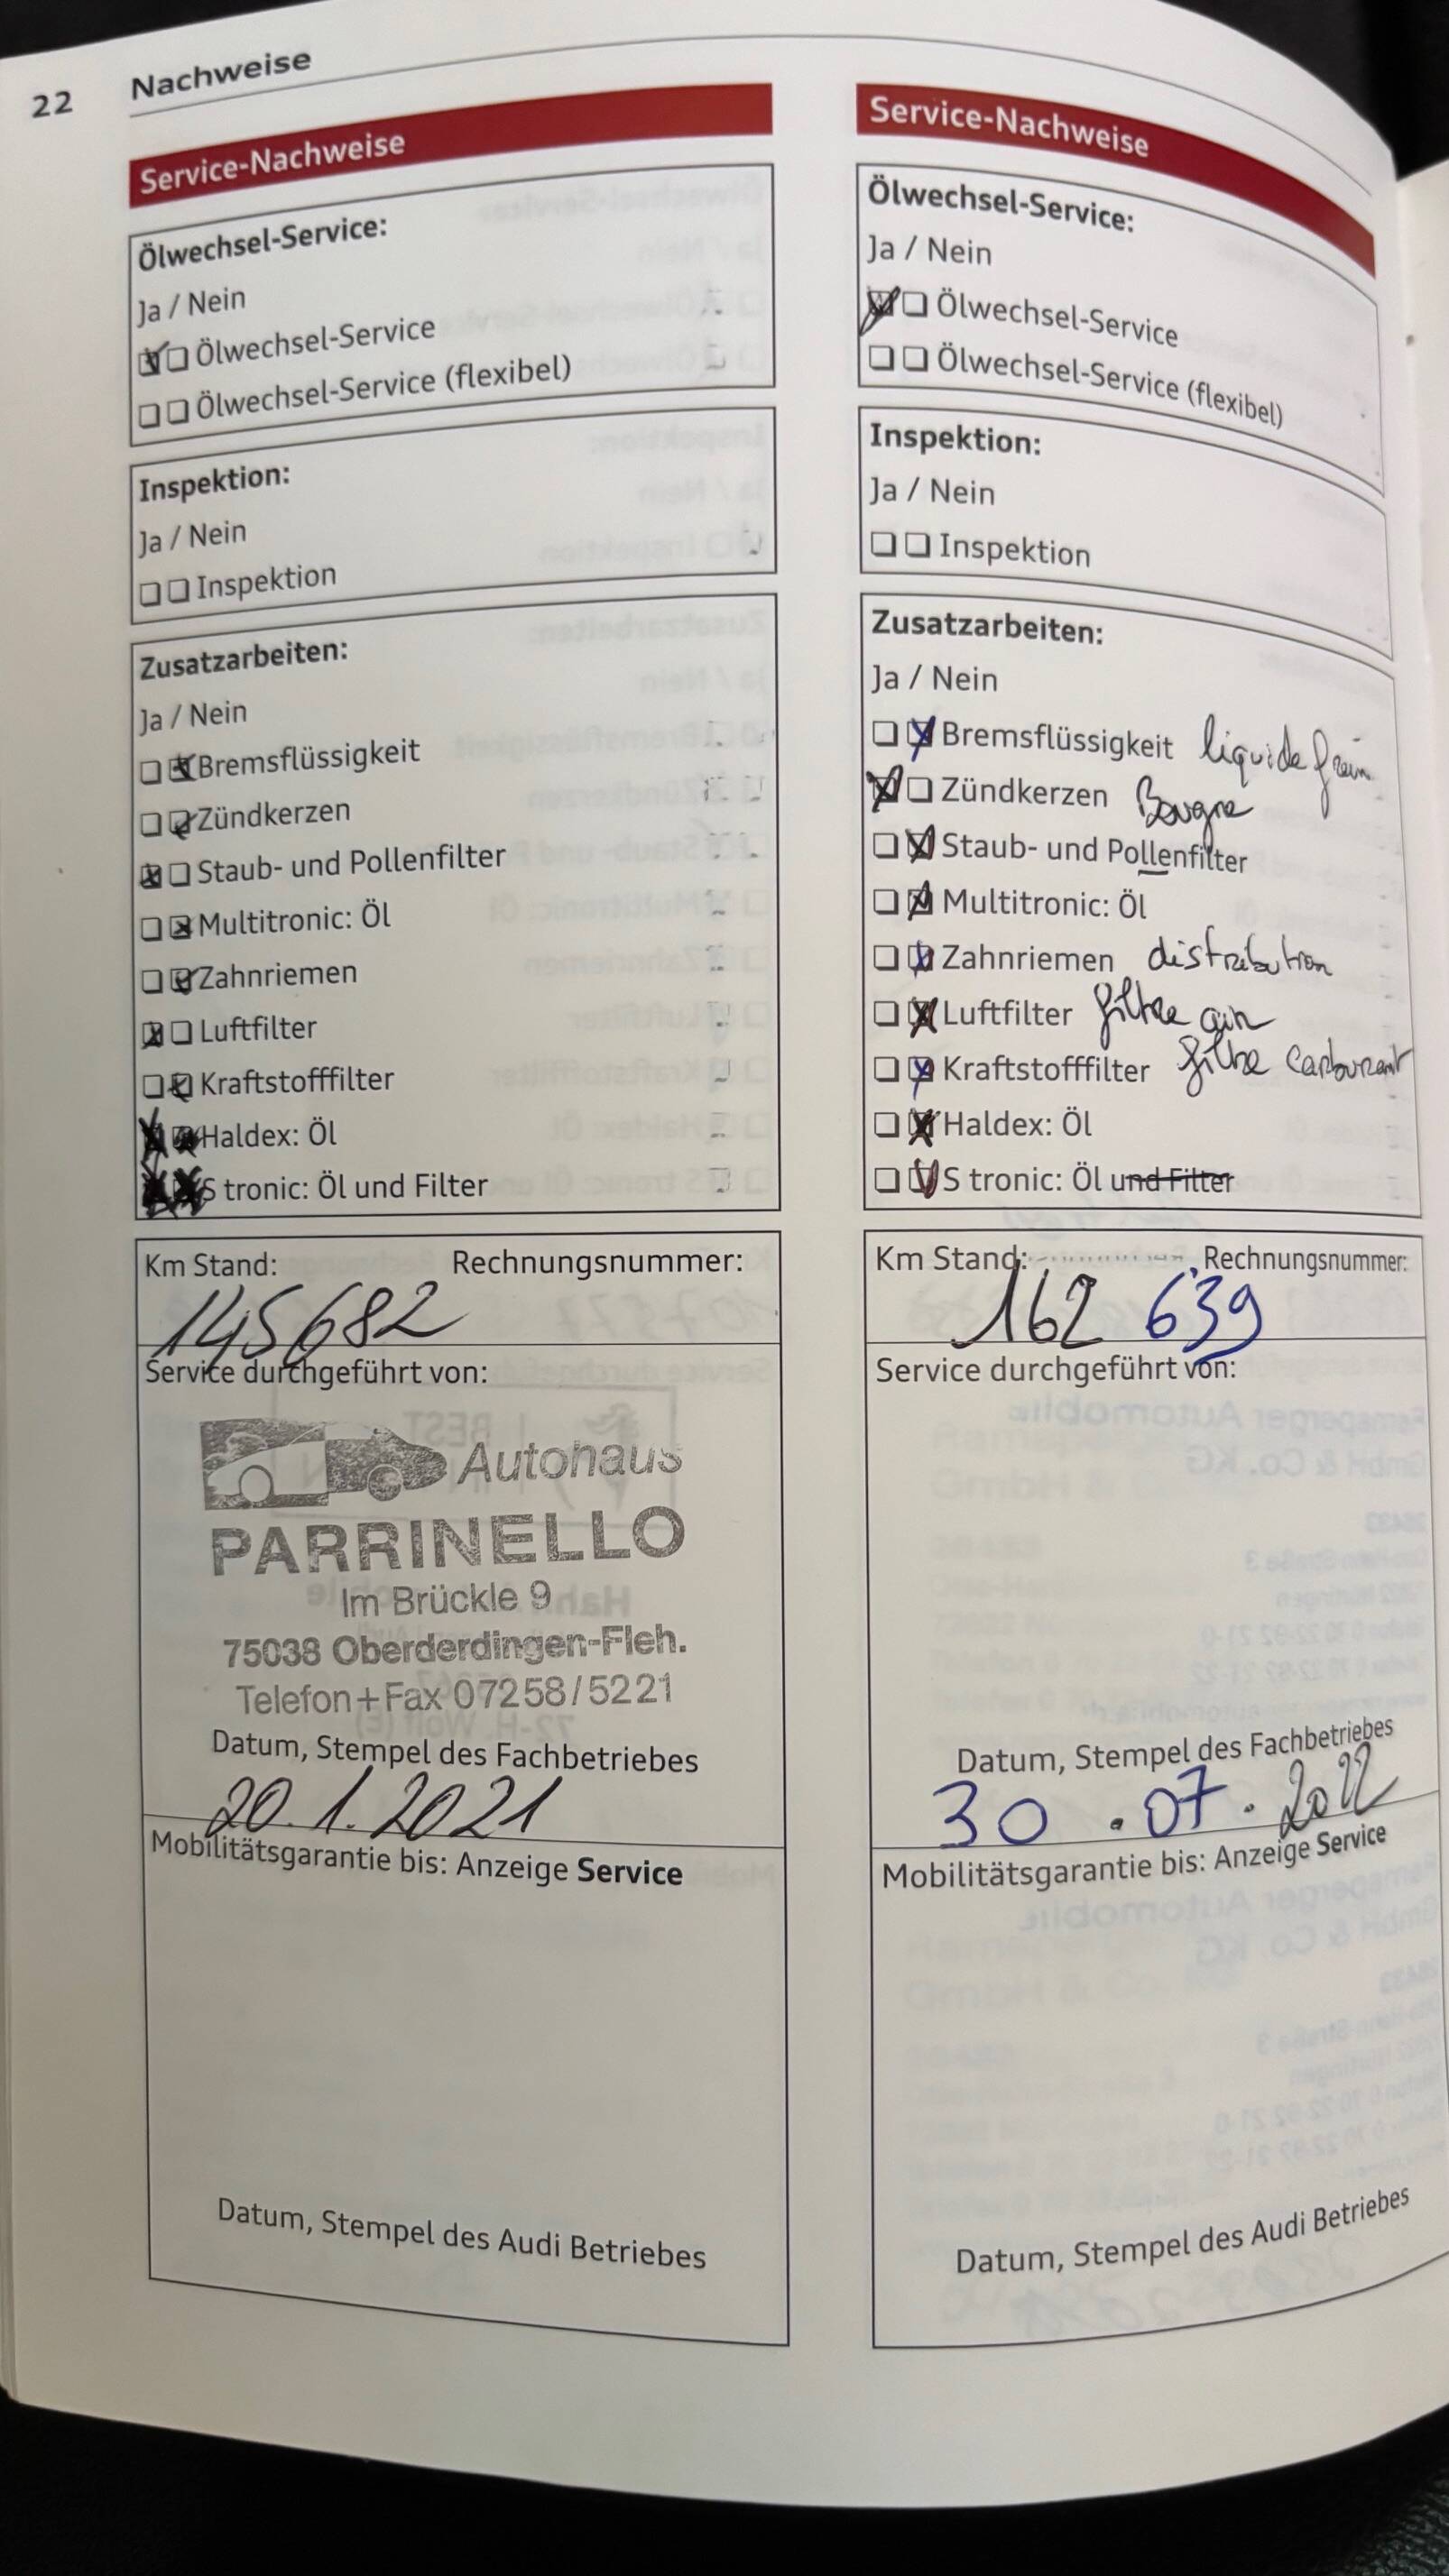 22 Nachweise
Service-Nachweise
Ölwechsel-Service:
Ja / Nein
Ölwechsel-Service
Ölwechsel-Service (flexibel)
Inspektion:
Ja / Nein
Inspektion
Zusatzarbeiten:
Ja / Nein
Bremsflüssigkeit
Zündkerzen
Staub- und Pollenfilter
Multitronic: Öl
Zahnriemen
Luftfilter
Kraftstofffilter
Haldex: Öl
S tronic: Öl und Filter
Km Stand: Rechnungsnummer:
145682
Service durchgeführt von:
Autohaus
PARRINELLO
Im Brückle 9
75038 Oberderdingen-Fleh.
Telefon+Fax 07258/5221
Datum, Stempel des Fachbetriebes
20.1.2021
Mobilitätsgarantie bis: Anzeige Service
Datum, Stempel des Audi Betriebes
Service-Nachweise
Ölwechsel-Service:
Ja / Nein
Ölwechsel-Service
Ölwechsel-Service (flexibel)
Inspektion:
Ja / Nein
Inspektion
Zusatzarbeiten:
Ja / Nein
Bremsflüssigkeit liquide frein
Zündkerzen Bougie
Staub- und Pollenfilter
Multitronic: Öl
Zahnriemen distribution
Luftfilter filtre air
Kraftstofffilter filtre carburant
Haldex: Öl
S tronic: Öl und Filter
Km Stand: Rechnungsnummer:
162 639
Service durchgeführt von:
Datum, Stempel des Fachbetriebes
30.07.2022
Mobilitätsgarantie bis: Anzeige Service
Datum, Stempel des Audi Betriebes